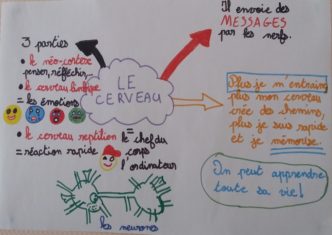 3 parties
• le néo-cortex
penser, réfléchir
• le cerveau limbique
= les émotions
• le cerveau reptilien
= réaction rapide
= le chef du
corps
l'ordinateur
les neurones
LE
CERVEAU
Il envoie des
MESSAGES
par les nerfs.
Plus je m'entraîne
plus mon cerveau
crée des chemins,
plus je suis rapide
et je mémorise.
On peut apprendre
toute sa vie!